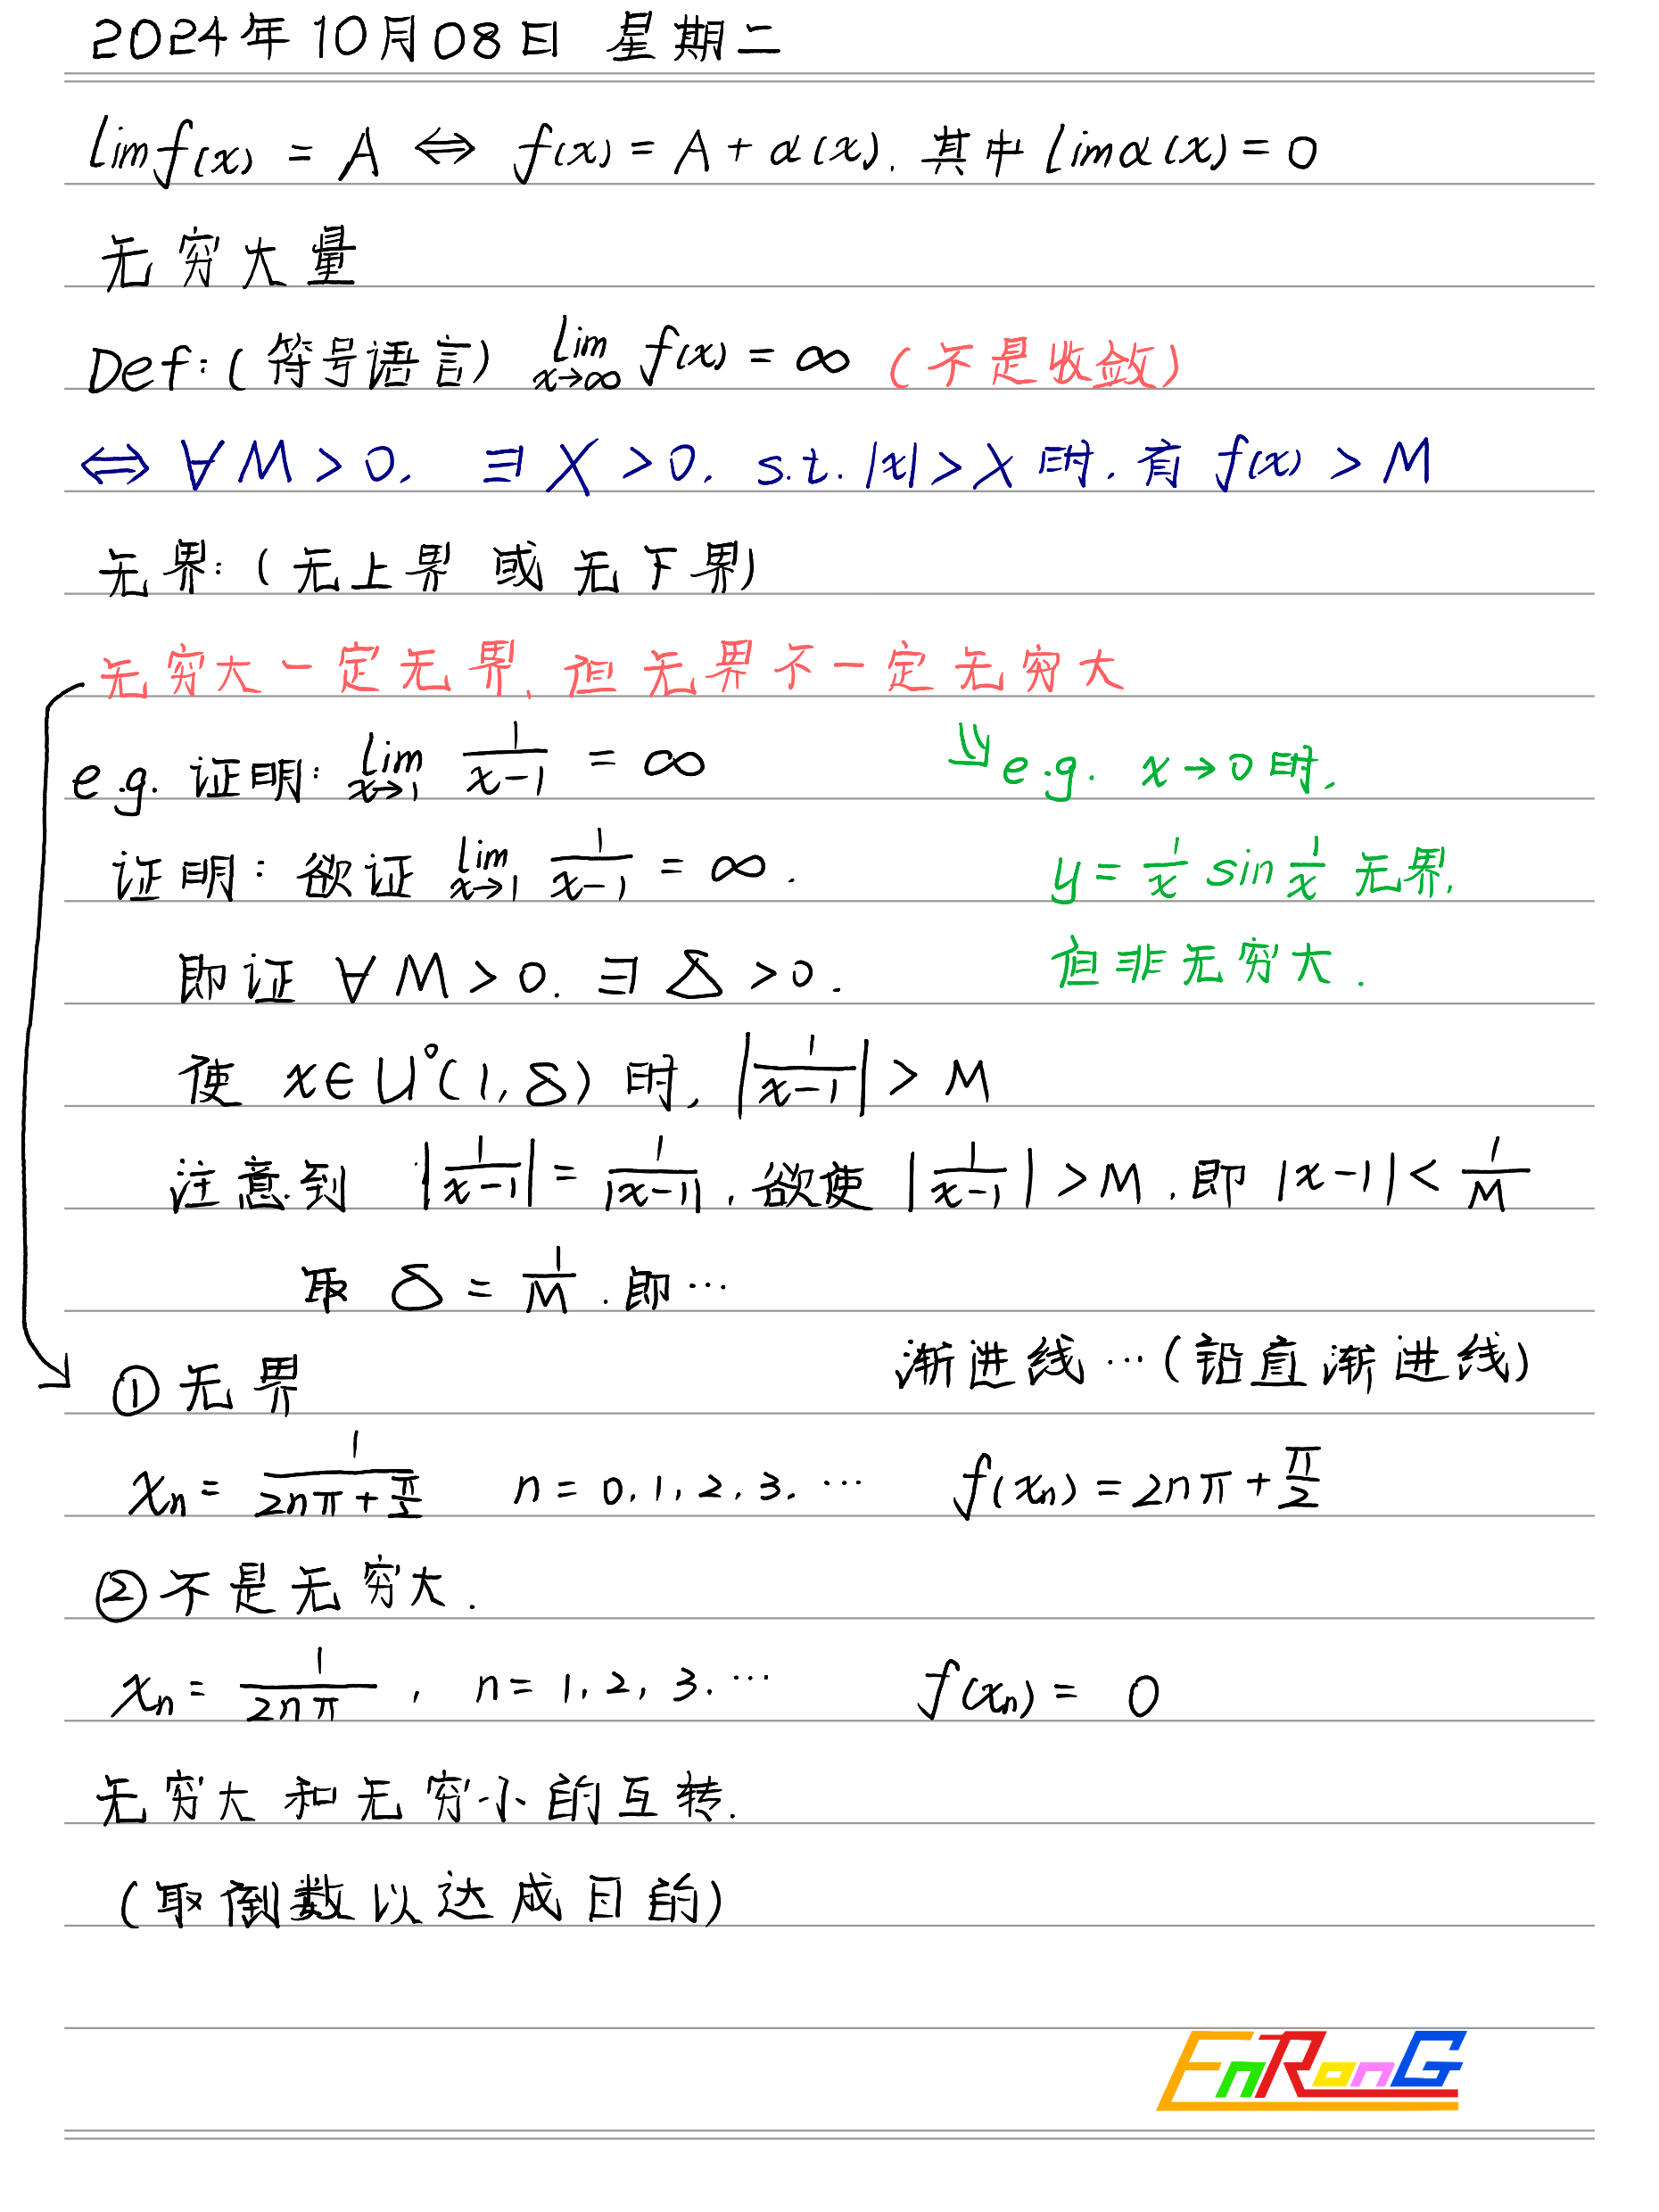 2024年10月08日 星期二
lim f(x) = A ⇔ f(x) = A + α(x). 其中 lim α(x) = 0
无穷大量
Def: (符号语言) lim x→∞ f(x) = ∞ (不是收敛)
⇔ ∀ M > 0. ∃ X > 0. s.t. |x| > X 时. 有 f(x) > M
无界: (无上界 或 无下界)
无穷大一定无界, 但无界不一定无穷大
e.g. 证明: lim x→1 1/(x-1) = ∞
e.g. x→0 时,
证明: 欲证 lim x→1 1/(x-1) = ∞.
y = 1/x sin 1/x 无界,
即证 ∀ M > 0. ∃ δ > 0.
但非无穷大.
使 x ∈ U°(1, δ) 时, |1/(x-1)| > M
注意到 |1/(x-1)| = 1/|x-1|, 欲使 |1/(x-1)| > M, 即 |x-1| < 1/M
取 δ = 1/M. 即…
渐进线…(铅直渐进线)
①无界
xₙ = 1/(2nπ + π/2) n = 0, 1, 2, 3. … f(xₙ) = 2nπ + π/2
②不是无穷大.
xₙ = 1/(2nπ), n = 1, 2, 3. … f(xₙ) = 0
无穷大和无穷小的互转.
(取倒数以达成目的)
EnRonG